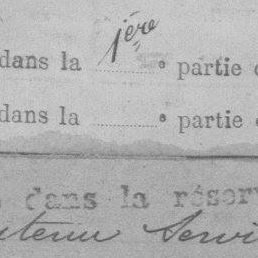 dans la 1ère e partie
dans la ........ e partie
dans la réser
Servi